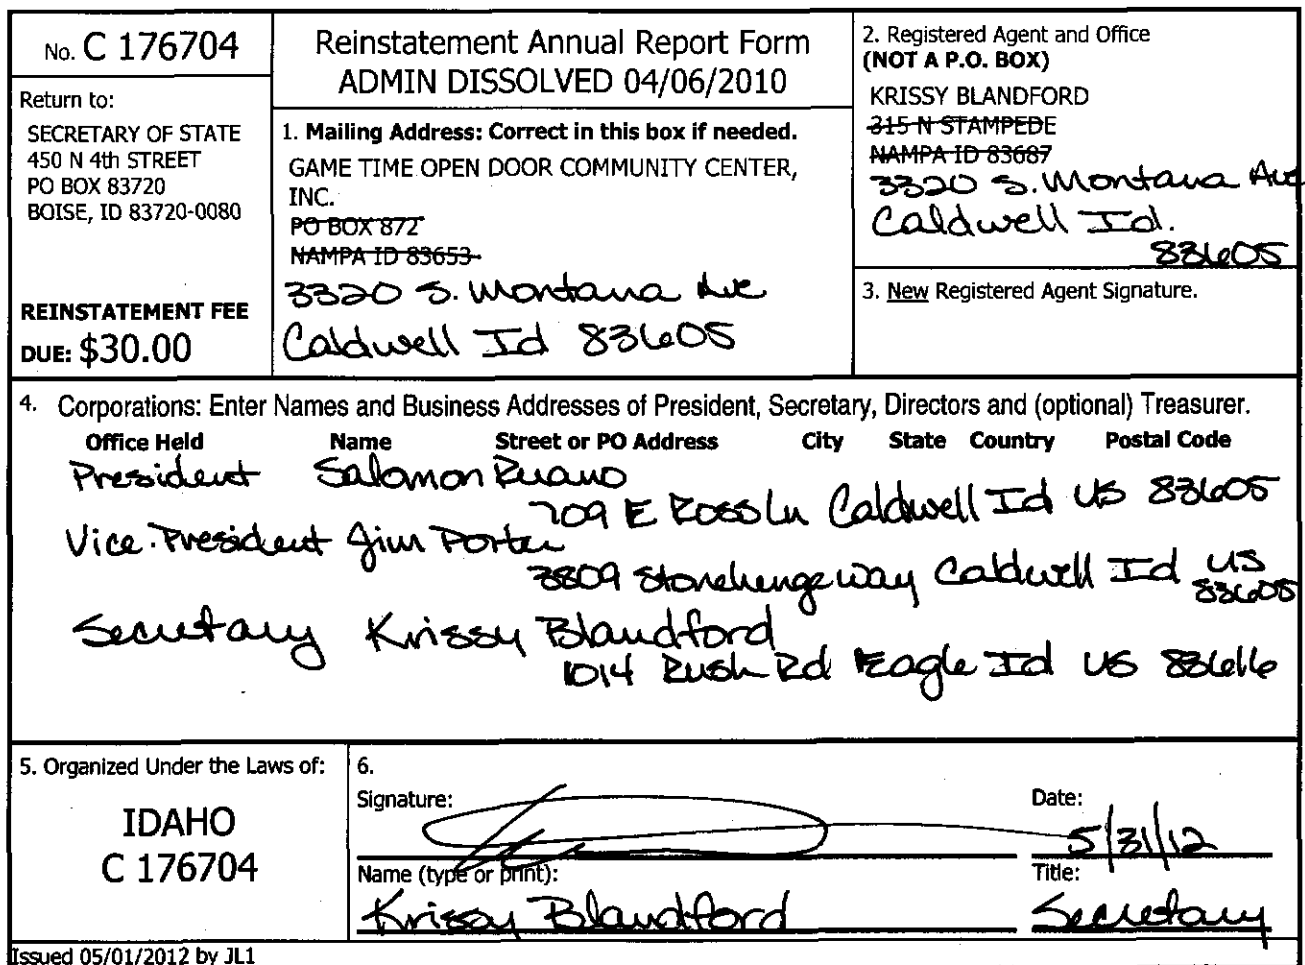 No. C 176704
Return to:
SECRETARY OF STATE
450 N 4th STREET
PO BOX 83720
BOISE, ID 83720-0080
REINSTATEMENT FEE
DUE: $30.00
Reinstatement Annual Report Form
ADMIN DISSOLVED 04/06/2010
1. Mailing Address: Correct in this box if needed.
GAME TIME OPEN DOOR COMMUNITY CENTER,
INC.
PO BOX 872
NAMPA ID 83653
3320 S. Montana Ave
Caldwell Id 83605
2. Registered Agent and Office
(NOT A P.O. BOX)
KRISSY BLANDFORD
315 N STAMPEDE
NAMPA ID 83687
3320 S. Montana Ave
Caldwell Id.
83605
3. New Registered Agent Signature.
4. Corporations: Enter Names and Business Addresses of President, Secretary, Directors and (optional) Treasurer.
Office Held Name Street or PO Address City State Country Postal Code
President Salomon Ruano
709 E Ross Ln Caldwell Id US 83605
Vice-President Jim Porter
3809 Stonehenge Way Caldwell Id US
83605
Secretary Krissy Blandford
1014 Rush Rd Eagle Id US 83616
5. Organized Under the Laws of:
IDAHO
C 176704
6.
Signature:
Date:
5/31/12
Name (type or print):
Title:
Krissy Blandford
Secretary
Issued 05/01/2012 by JL1